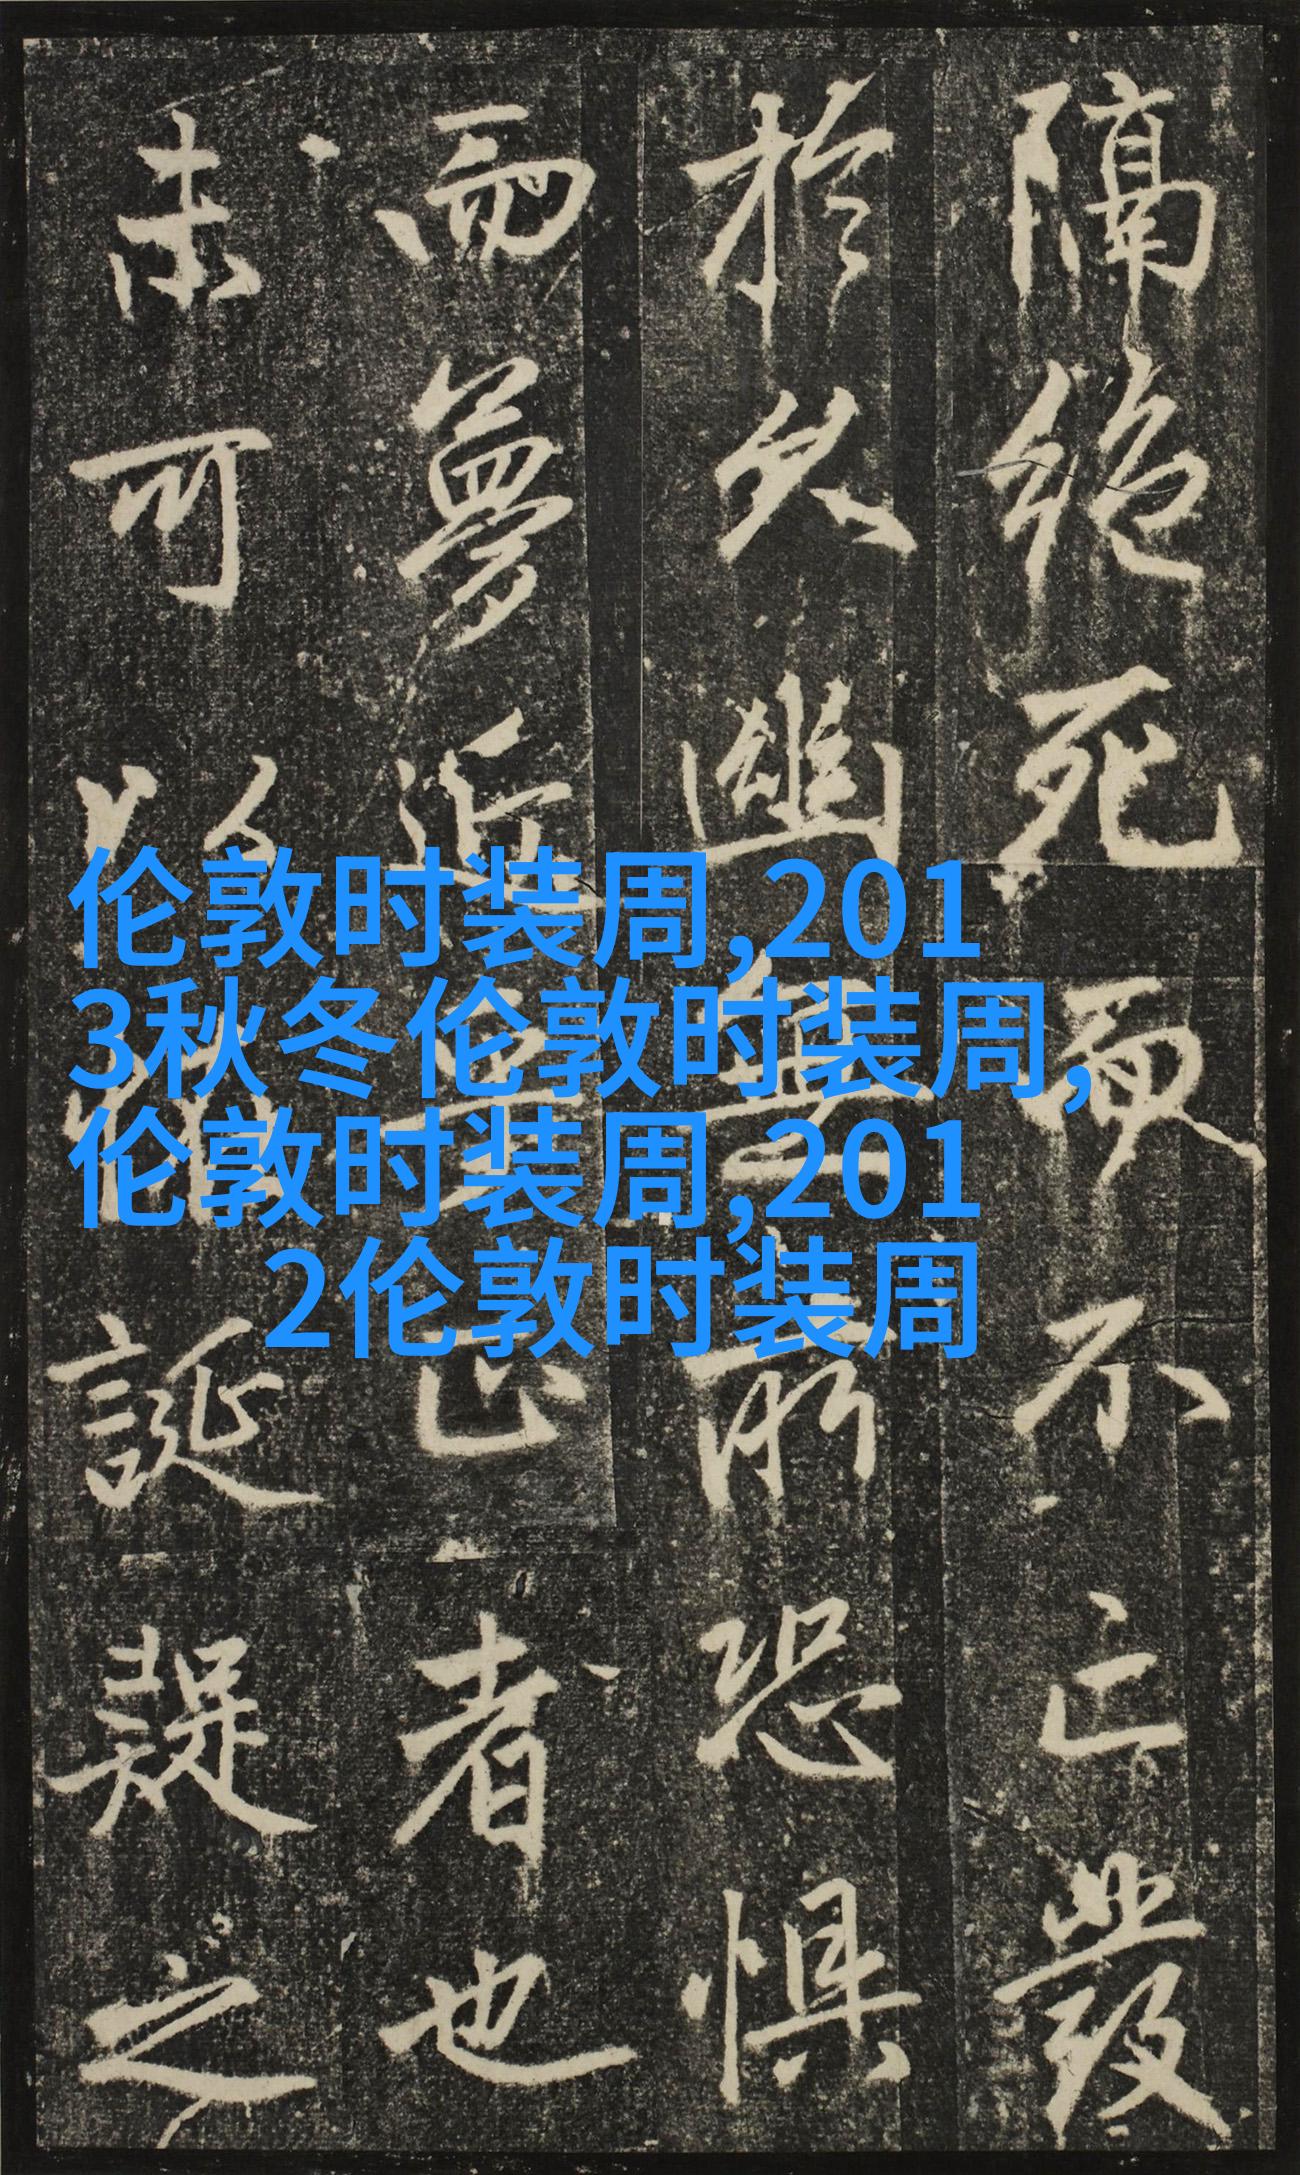 隔絕死而不亡發
於久幽無所恐懼
而夢近正者也
未可以誕疑之
伦敦时装周,201
3秋冬伦敦时装周,
伦敦时装周,201
2伦敦时装周